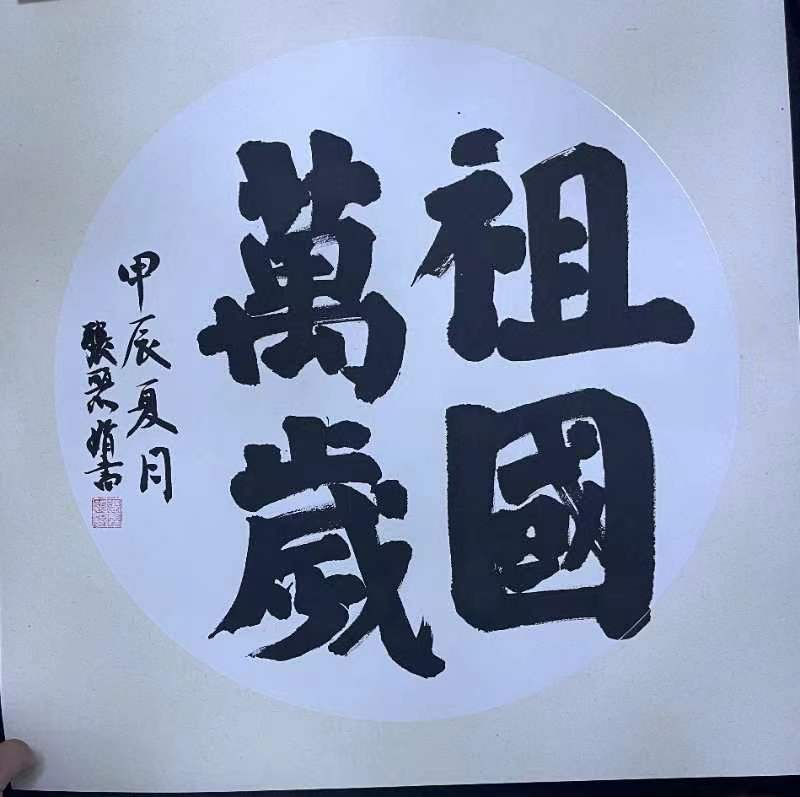 祖國
萬歲
甲辰夏月
張翠娟書